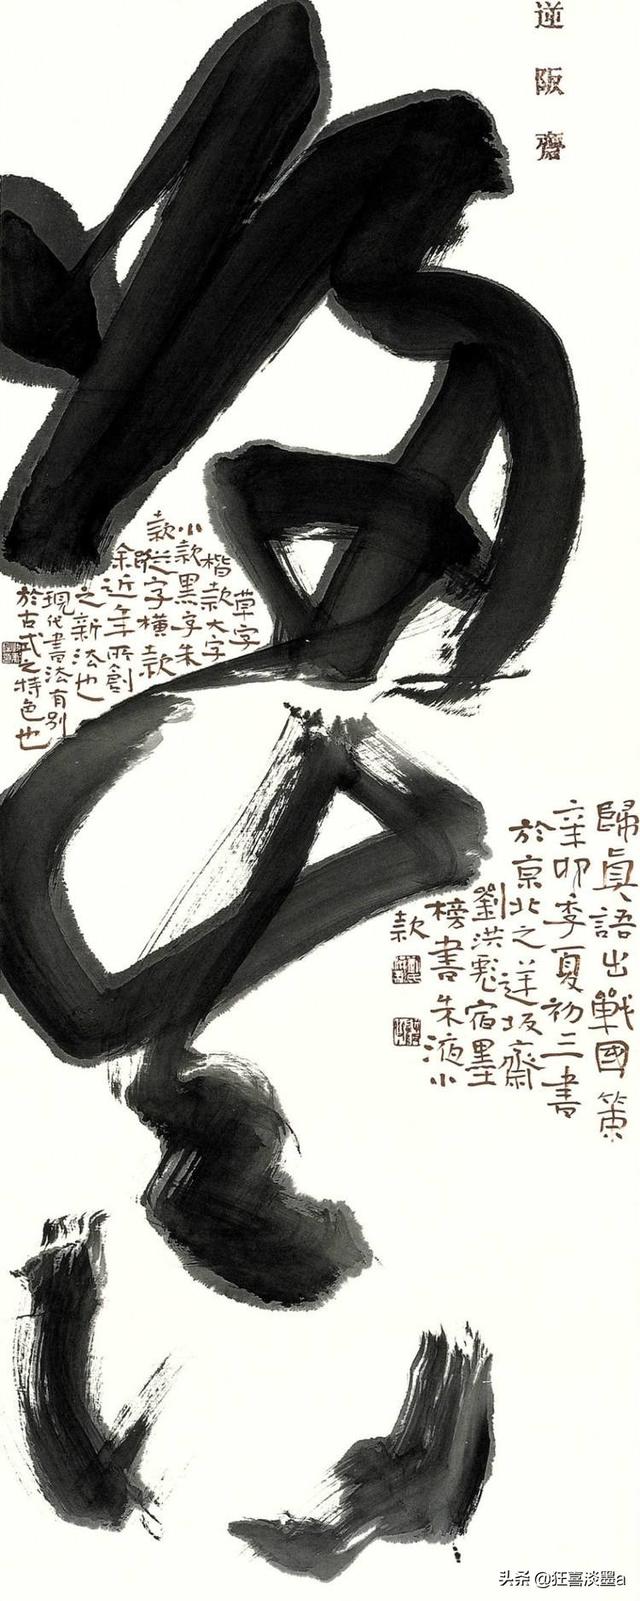 逆阪齋
歸眞語出戰國策
辛卯季夏初三書
於京北之逆坂齋
劉洪彪宿墨
榜書朱液小
款
草字
楷款大字
小款黑字朱
款縱字橫款
余近年所創
之新法也
現代書法有別
於古式之特色也
头条 @狂喜淡墨a